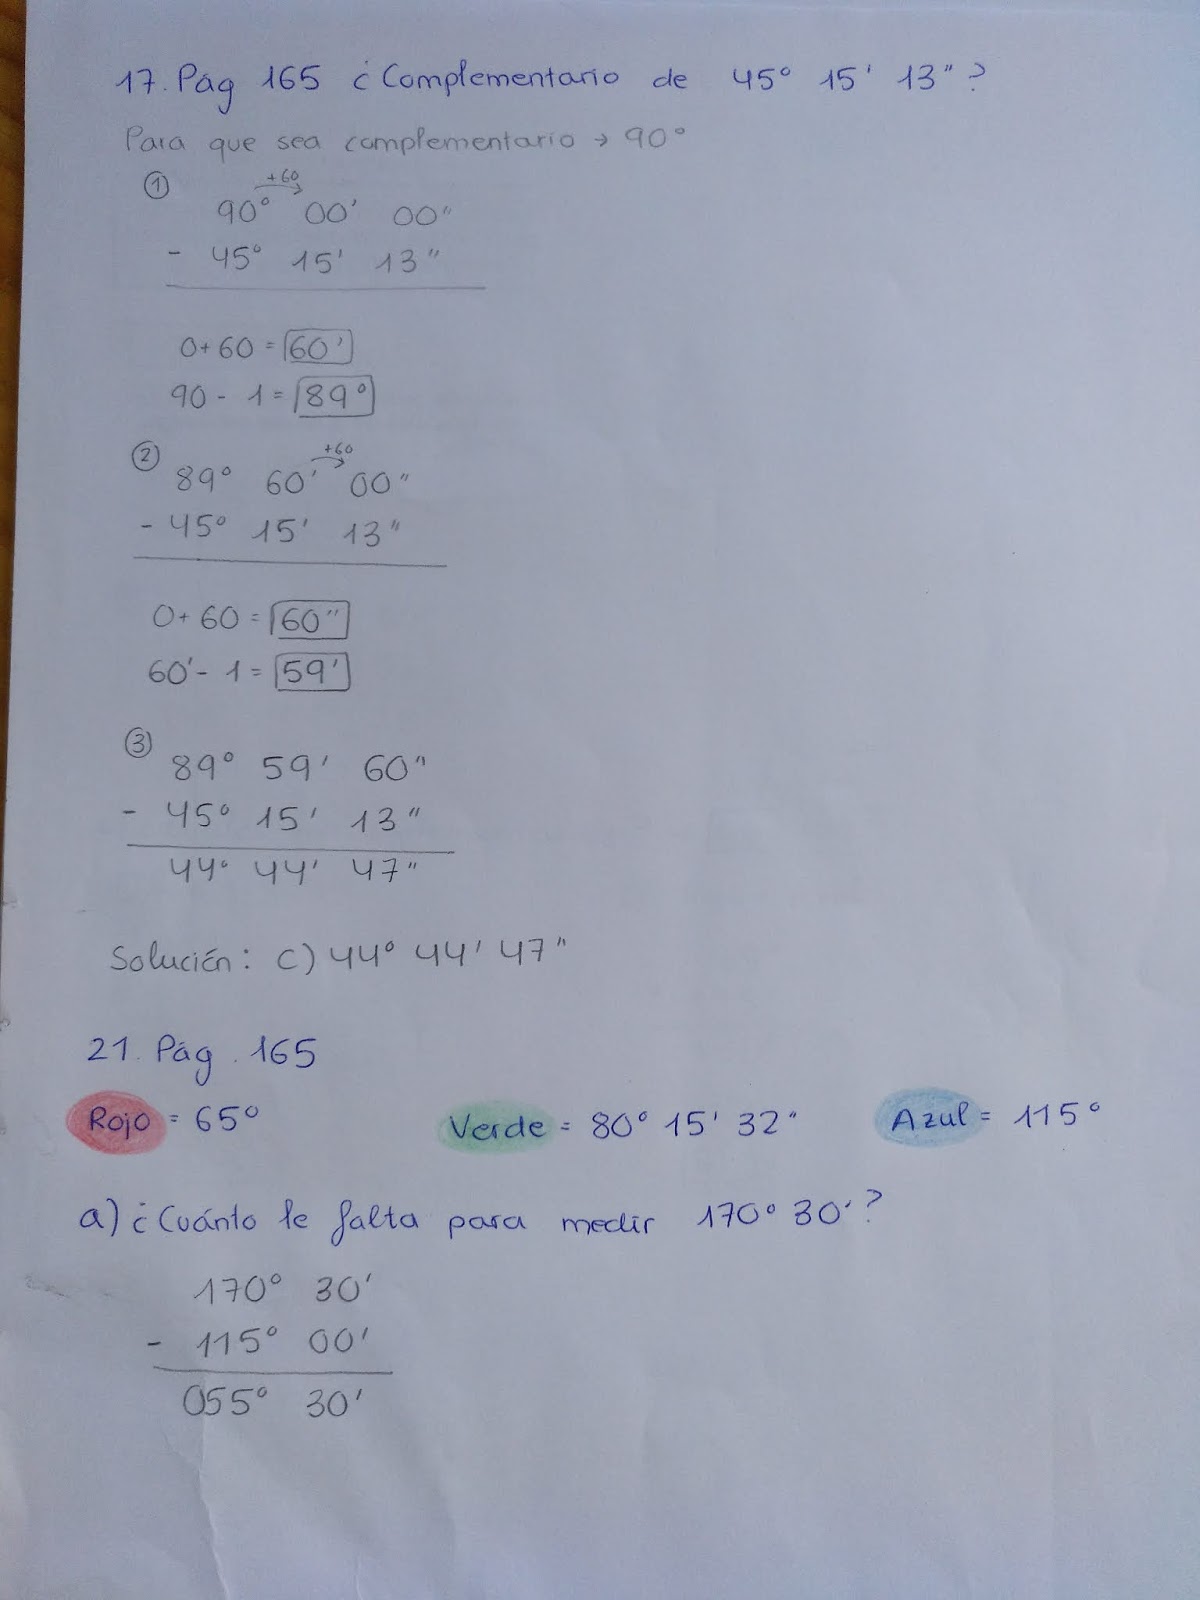 17. Pág 165 ¿Complementario de 45° 15' 13"?
Para que sea complementario → 90°
① +60
90° 00' 00"
- 45° 15' 13"
0+60 = 60'
90 - 1 = 89°
② +60
89° 60' 00"
- 45° 15' 13"
0+60 = 60"
60' - 1 = 59'
③
89° 59' 60"
- 45° 15' 13"
44° 44' 47"
Solución: C) 44° 44' 47"
21. Pág. 165
Rojo = 65° Verde = 80° 15' 32" Azul = 115°
a) ¿Cuánto le falta para medir 170° 30'?
170° 30'
- 115° 00'
055° 30'